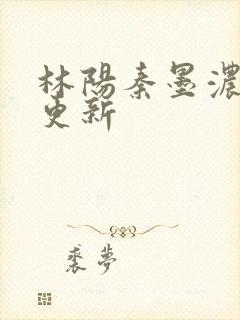 林陽秦墨濃
更新
裘夢